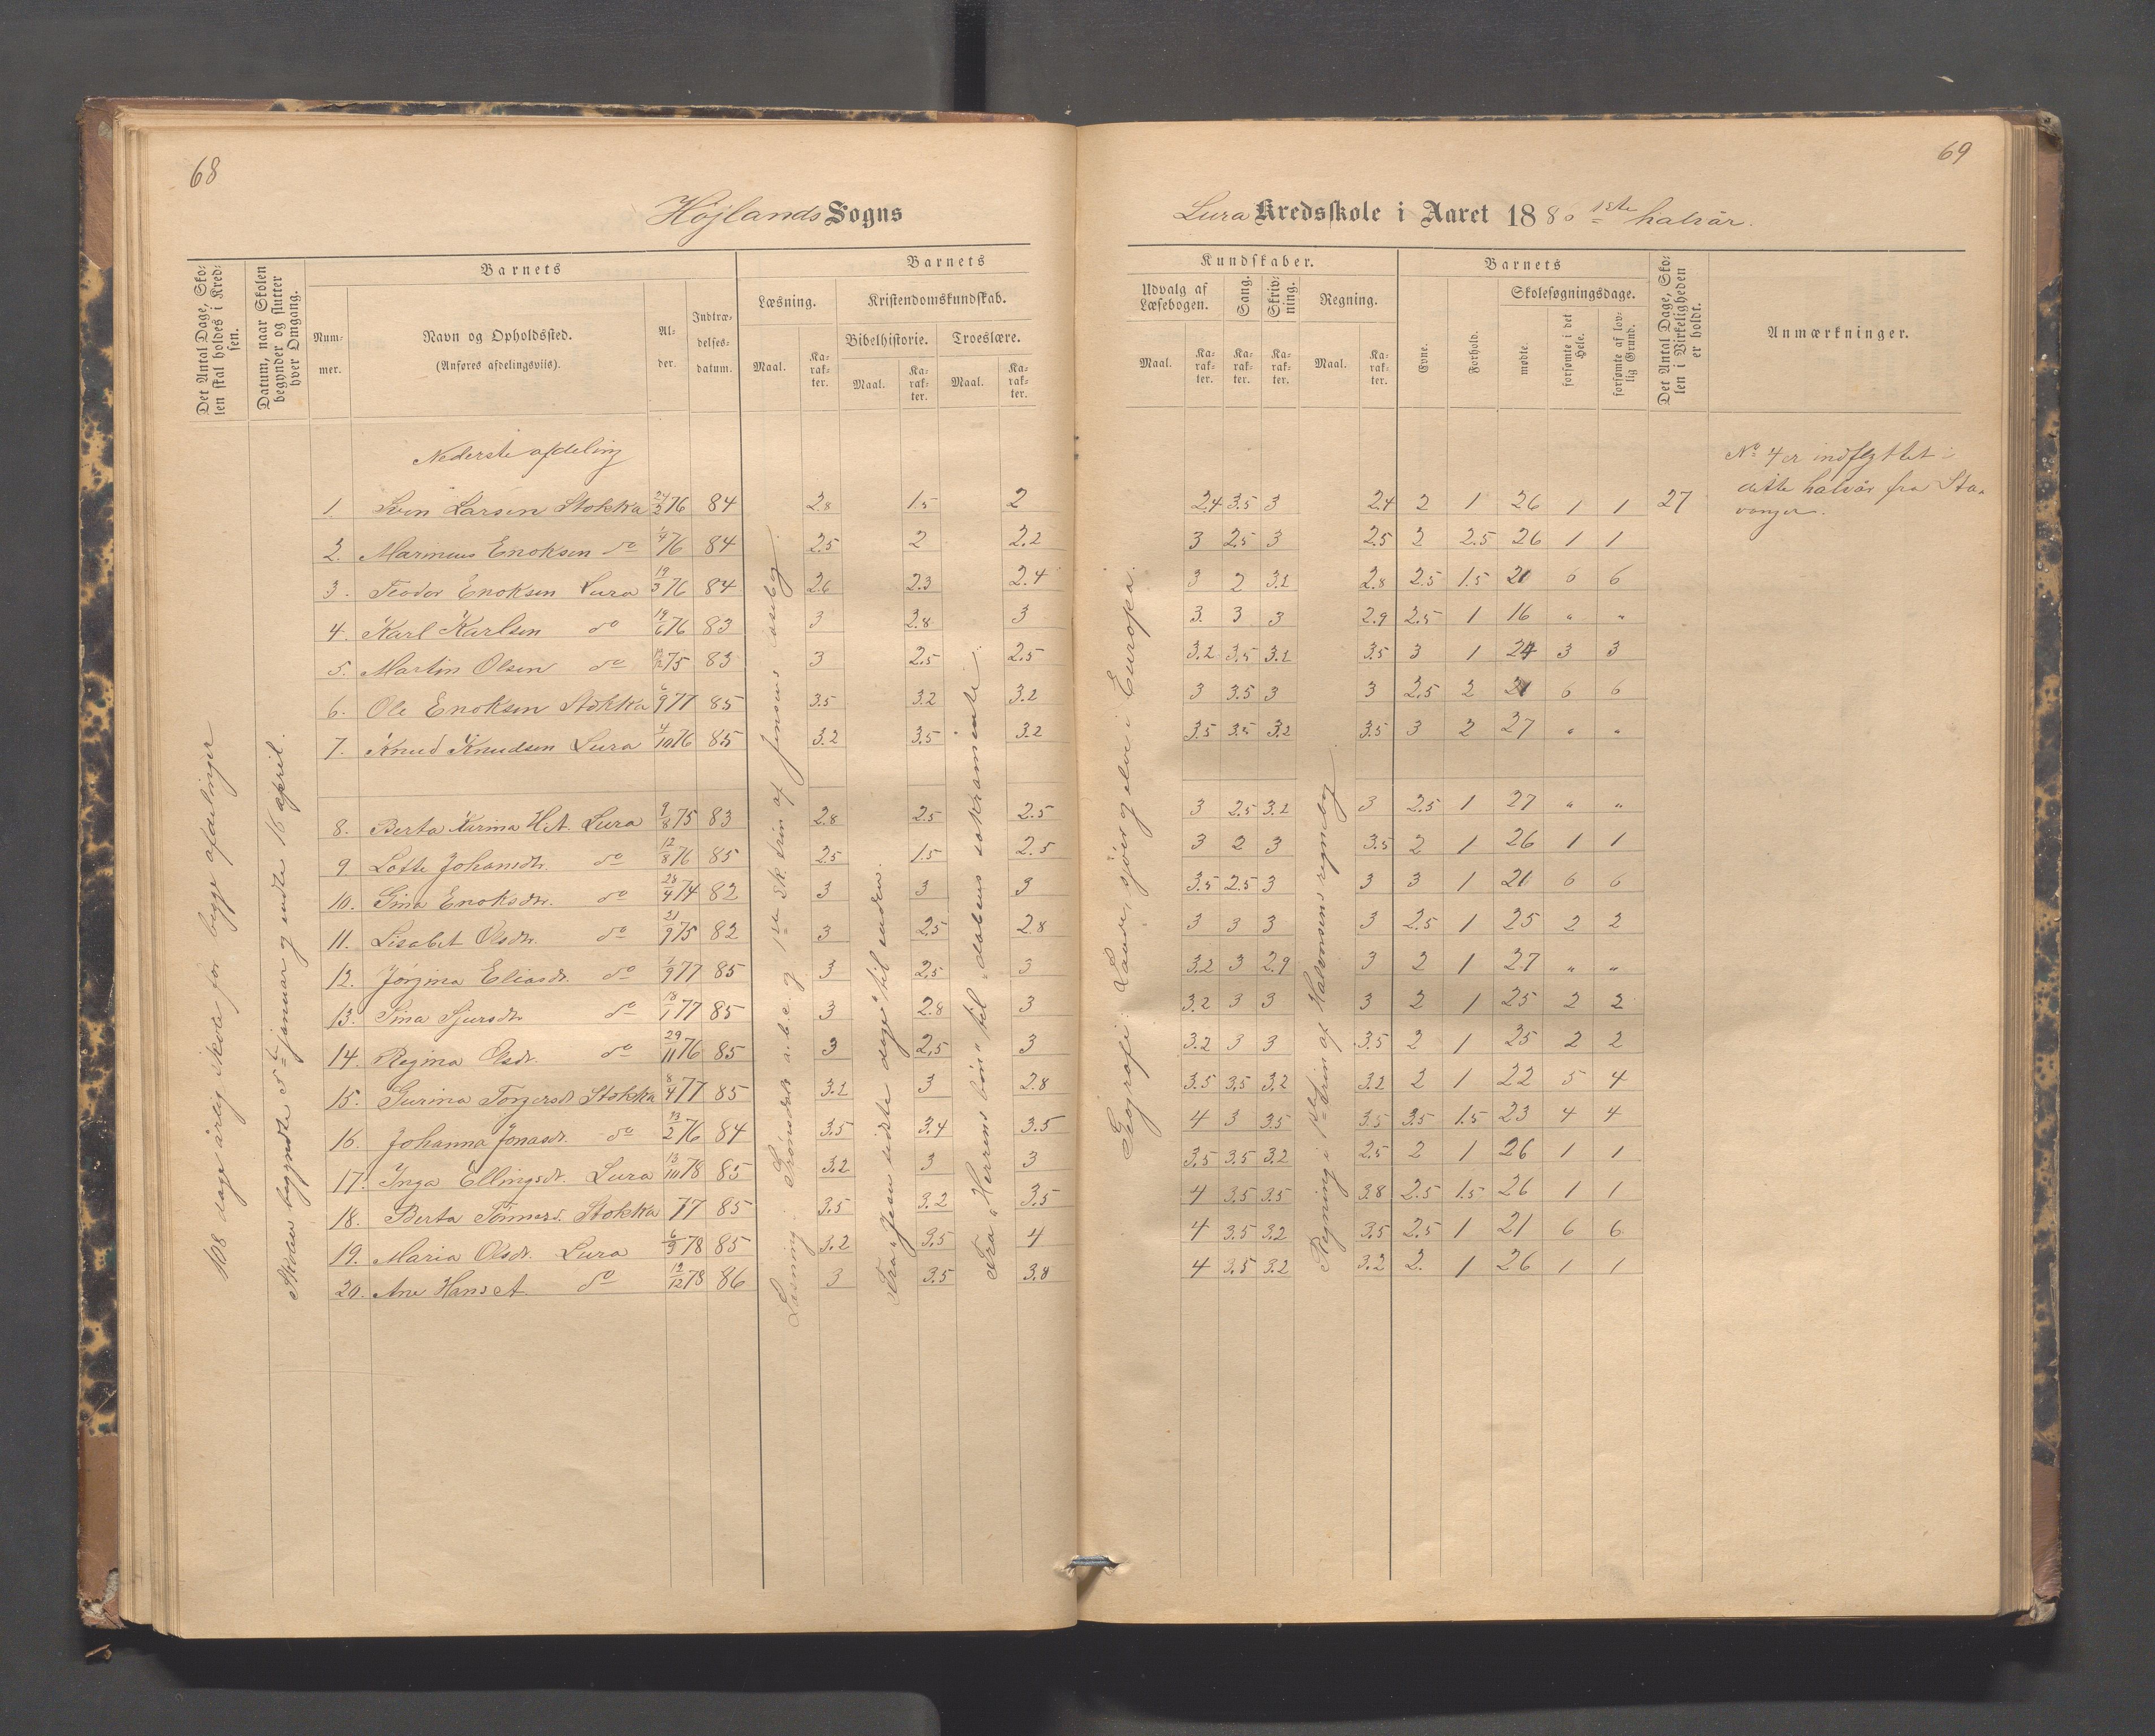 68
Höjlands Sogns
Det Antal Dage, Skolen skal holdes i Kredsen.
Datum, naar Skolen begynder og slutter hver Omgang.
Barnets
Nummer.
Navn og Opholdssted.
(Anføres afdelingsviis).
Alder.
Indtrædelsesdatum.
Barnets
Læsning.
Kristendomskundskab.
Bibelhistorie.
Troeslære.
Maal.
Karakter.
Maal.
Karakter.
Maal.
Karakter.
108 dage årlig skole for begge afdelinger
Skolen begyndte 5te januar og endte 16 april.
Læsning: a.b.c. og 1ste sk. trin af Jensens læsebog.
Fra "Jesu sidste dage" til enden.
Fra "Herrens bön" til "dåbens sakramente".
Nederste afdeling
1. Sven Larsen Stokka 24/2 76 84 2.8 1.5 2
2. Marineus Enoksen do 1/4 76 84 2.5 2 2.2
3. Teodor Enoksen Lura 19/3 76 84 2.6 2.3 2.4
4. Karl Karlsen do 19/6 76 83 3 2.8 3
5. Martin Olsen do 75 83 3 2.5 2.5
6. Ole Enoksen Stokka 6/9 77 85 3.5 3.2 3.2
7. Knud Knudsen Lura 4/10 76 85 3.2 3.5 3.2
8. Berta Karina Lura 9/8 75 83 2.8 2.5 2.5
9 Lotte Johansdtr. do 12/8 76 85 2.5 1.5 2.5
10. Sina Enoksdtr. do 28/4 74 82 3 3 3
11. Lisabet Olsdtr. do 21/9 75 82 3 2.5 2.8
12. Jörgina Eliasdr. do 1/9 77 85 3 2.5 3
13. Sina Sjursdtr do 18/1 77 85 3 2.8 3
14. Regina Olsdr. do 29/11 76 85 3 2.5 3
15. Gurina Torgersdr Stokka 8/4 77 85 3.2 3 2.8
16. Johanna Jonasdr. do 13/2 76 84 3.5 3.4 3.5
17. Inga Ellingsdr. Lura 13/10 78 85 3.2 3 3
18. Berta Stokka 77 85 3.5 3.2 3.5
19. Maria Olsdr. Lura 6/9 78 85 3.2 3.5 4
20. Ane Hans do 12/12 78 86 3 3.5 3.8
69
Lura Kredsskole i Aaret 1886 1ste halvår.
Kundskaber.
Udvalg af Læsebogen.
Sang.
Skrivning.
Regning.
Maal.
Karakter.
Karakter.
Karakter.
Maal.
Karakter.
Barnets
Evne.
Forhold.
Skolesøgningsdage.
mødte.
forsømte i det Hele.
forsømte af lovlig Grund.
Det Antal Dage, Skolen i Virkeligheden er holdt.
Anmærkninger.
Geografi: Lande, sjöer og elve i Europa.
Regning i 1ste trin af Halvorsens regnebog
2.4 3.5 3 2.4 2 1 26 1 1 27
3 2.5 3 2.5 2 2.5 26 1 1
3 2 3.2 2.8 2.5 1.5 21 6 6
3. 3 3 2.9 2.5 1 16 " "
3.2 3.5 3.2 3.5 3 1 24 3 3
3 3.5 3 3 2.5 2 21 6 6
3.5 3.5 3.2 3.5 3 2 27 " "
3 2.5 3.2 3 2.5 1 27 " "
3 2 3 3.5 2 1 26 1 1
3.5 2.5 3 3 3 1 21 6 6
3 3 3 3 2.5 1 25 2 2
3.2 3 2.9 3 2 1 27 " "
3.2 3 3 3 2 1 25 2 2
3.2 3 3 3.5 2 1 25 2 2
3.5 3.5 3.2 3.2 2 1 22 5 4
4 3 3.5 3.5 3.5 1.5 23 4 4
3.5 3.5 3.2 2.5 2 1 26 1 1
4 3.5 3.5 3.8 2.5 1.5 26 1 1
4 3.5 3.2 3.5 2.5 1 21 6 6
4 3.5 3.2 3.2 2. 1 26 1 1
No 4 er indflyttet i
dette halvår fra Sta-
vanger.